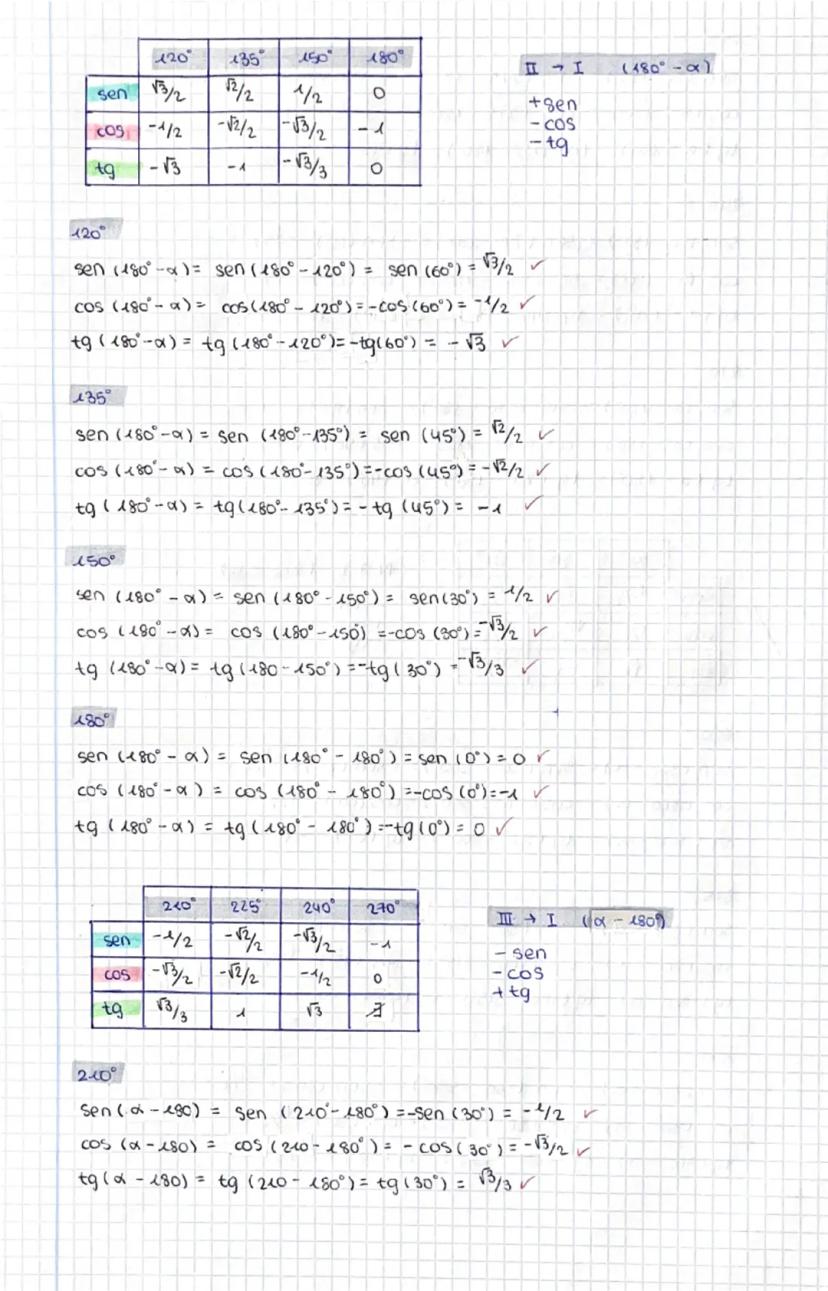 120° 135° 150° 180°
sen √3/2 √2/2 1/2 0
cos -1/2 -√2/2 -√3/2 -1
tg -√3 -1 -√3/3 0
II → I (180° - α)
+sen
-cos
-tg
120°
sen (180° - α) = sen (180° - 120°) = sen (60°) = √3/2 ✓
cos (180° - α) = cos (180° - 120°) = -cos (60°) = -1/2 ✓
tg (180° - α) = tg (180° - 120°) = -tg(60°) = -√3 ✓
135°
sen (180° - α) = sen (180° - 135°) = sen (45°) = √2/2 ✓
cos (180° - α) = cos (180° - 135°) = -cos (45°) = -√2/2 ✓
tg (180° - α) = tg (180° - 135°) = -tg (45°) = -1 ✓
150°
sen (180° - α) = sen (180° - 150°) = sen (30°) = 1/2 ✓
cos (180° - α) = cos (180° - 150°) = -cos (30°) = -√3/2 ✓
tg (180° - α) = tg (180 - 150°) = -tg (30°) = -√3/3 ✓
180°
sen (180° - α) = sen (180° - 180°) = sen (0°) = 0 ✓
cos (180° - α) = cos (180° - 180°) = -cos (0°) = -1 ✓
tg (180° - α) = tg (180° - 180°) = -tg (0°) = 0 ✓
210° 225° 240° 270°
sen -1/2 -√2/2 -√3/2 -1
cos -√3/2 -√2/2 -1/2 0
tg √3/3 1 √3 ∄
III → I (α - 180°)
- sen
- cos
+ tg
210°
sen (α - 180) = sen (210° - 180°) = -sen (30°) = -1/2 ✓
cos (α - 180) = cos (210 - 180°) = - cos (30°) = -√3/2 ✓
tg (α - 180) = tg (210 - 180°) = tg (30°) = √3/3 ✓